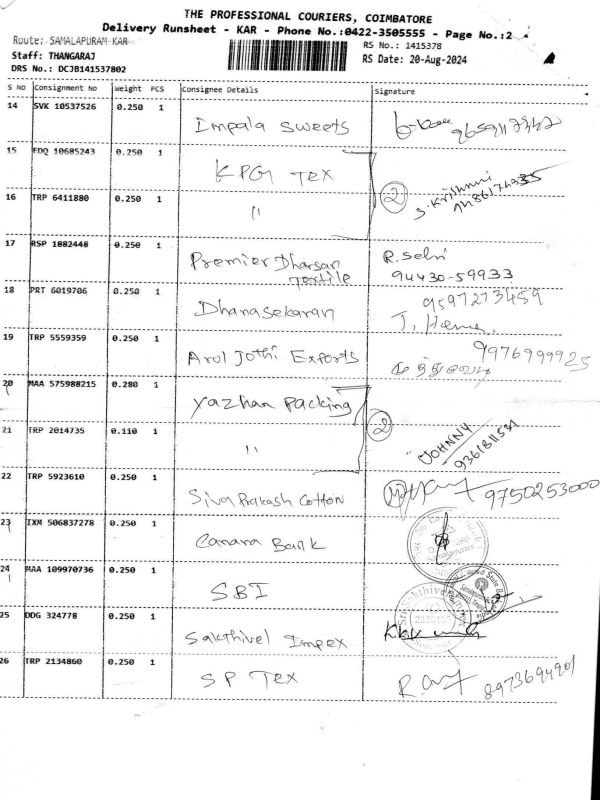 THE PROFESSIONAL COURIERS, COIMBATORE
Delivery Runsheet - KAR - Phone No.:0422-3505555 - Page No.:2
Route: SAMALAPURAM KAR
RS No.: 1415378
Staff: THANGARAJ
RS Date: 20-Aug-2024
DRS No.: DCJB141537802
S No Consignment No Weight PCS Consignee Details Signature
14 SVK 10537526 0.250 1
Impala Sweets
15 EDQ 10685243 0.250 1
KPG Tex
2
S. Krishnni
16 TRP 6411880 0.250 1
"
17 RSP 1882448 0.250 1
Premier Dharsan Textile
R. Selvi
94430-59933
18 PRT 6019706 0.250 1
Dhanasekaran
9597273459
J. Hema
19 TRP 5559359 0.250 1
Arul Jothi Exports
9976999925
20 MAA 575988215 0.280 1
Yazhan Packing
2
JOHNNY
9361811531
21 TRP 2014735 0.110 1
"
22 TRP 5923610 0.250 1
Siva Prakash Cotton
9750253000
23 IXM 506837278 0.250 1
Canara Bank
24 MAA 109970736 0.250 1
SBI
25 DDG 324778 0.250 1
Sakthivel Impex
26 TRP 2134860 0.250 1
SP Tex
8973694901